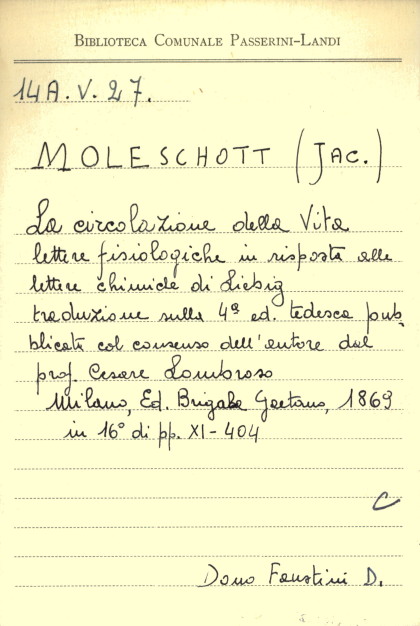 BIBLIOTECA COMUNALE PASSERINI-LANDI
14A.V.27.
MOLESCHOTT (JAC.)
La circolazione della Vita
lettere fisiologiche in risposta alle
lettere chimiche di Liebig
traduzione sulla 4ª ed. tedesca pub_
blicata col consenso dell'autore dal
prof. Cesare Lombroso
Milano, Ed. Brigola Gaetano, 1869
in 16° di pp. XI-404
C
Dono Faustini D.